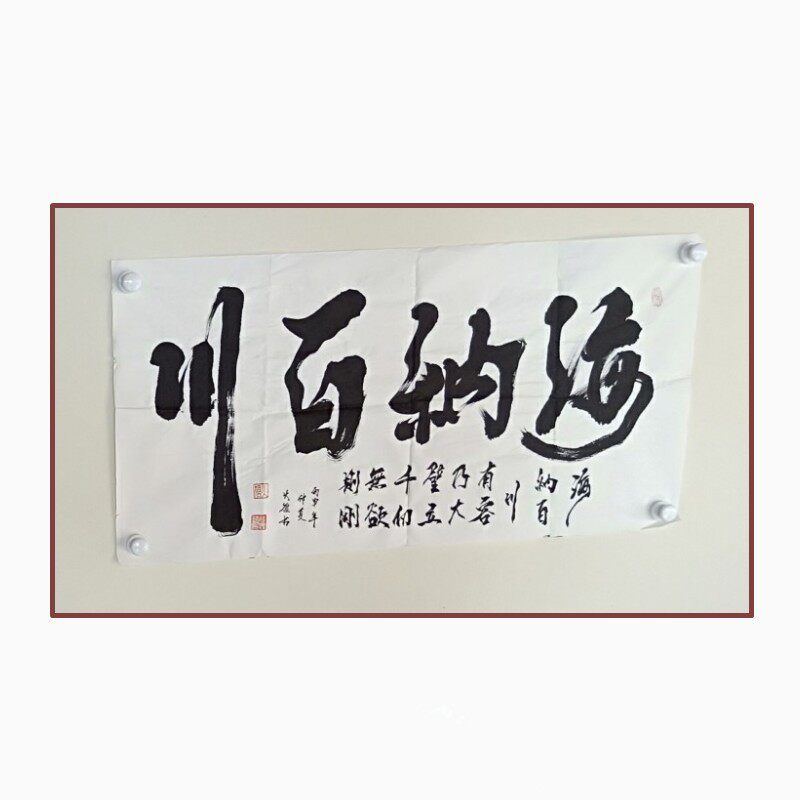 海納百川
海
納百
川
有容
乃大
壁立
千仞
無欲
則剛
丙申年
仲夏